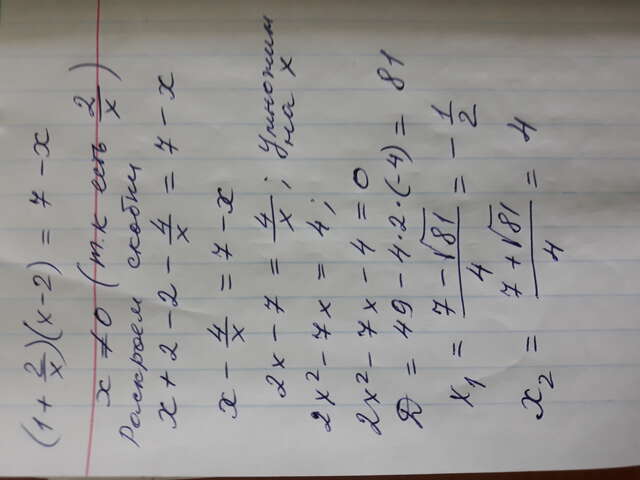 (1 + 2/x)(x - 2) = 7 - x
x ≠ 0 (т.к есть 2/x)
Раскроем скобки
x + 2 - 2 - 4/x = 7 - x
x - 4/x = 7 - x
2x - 7 = 4/x ; Умножим на x
2x² - 7x = 4 ;
2x² - 7x - 4 = 0
Д = 49 - 4·2·(-4) = 81
x₁ = (7 - √81)/4 = - 1/2
x₂ = (7 + √81)/4 = 4